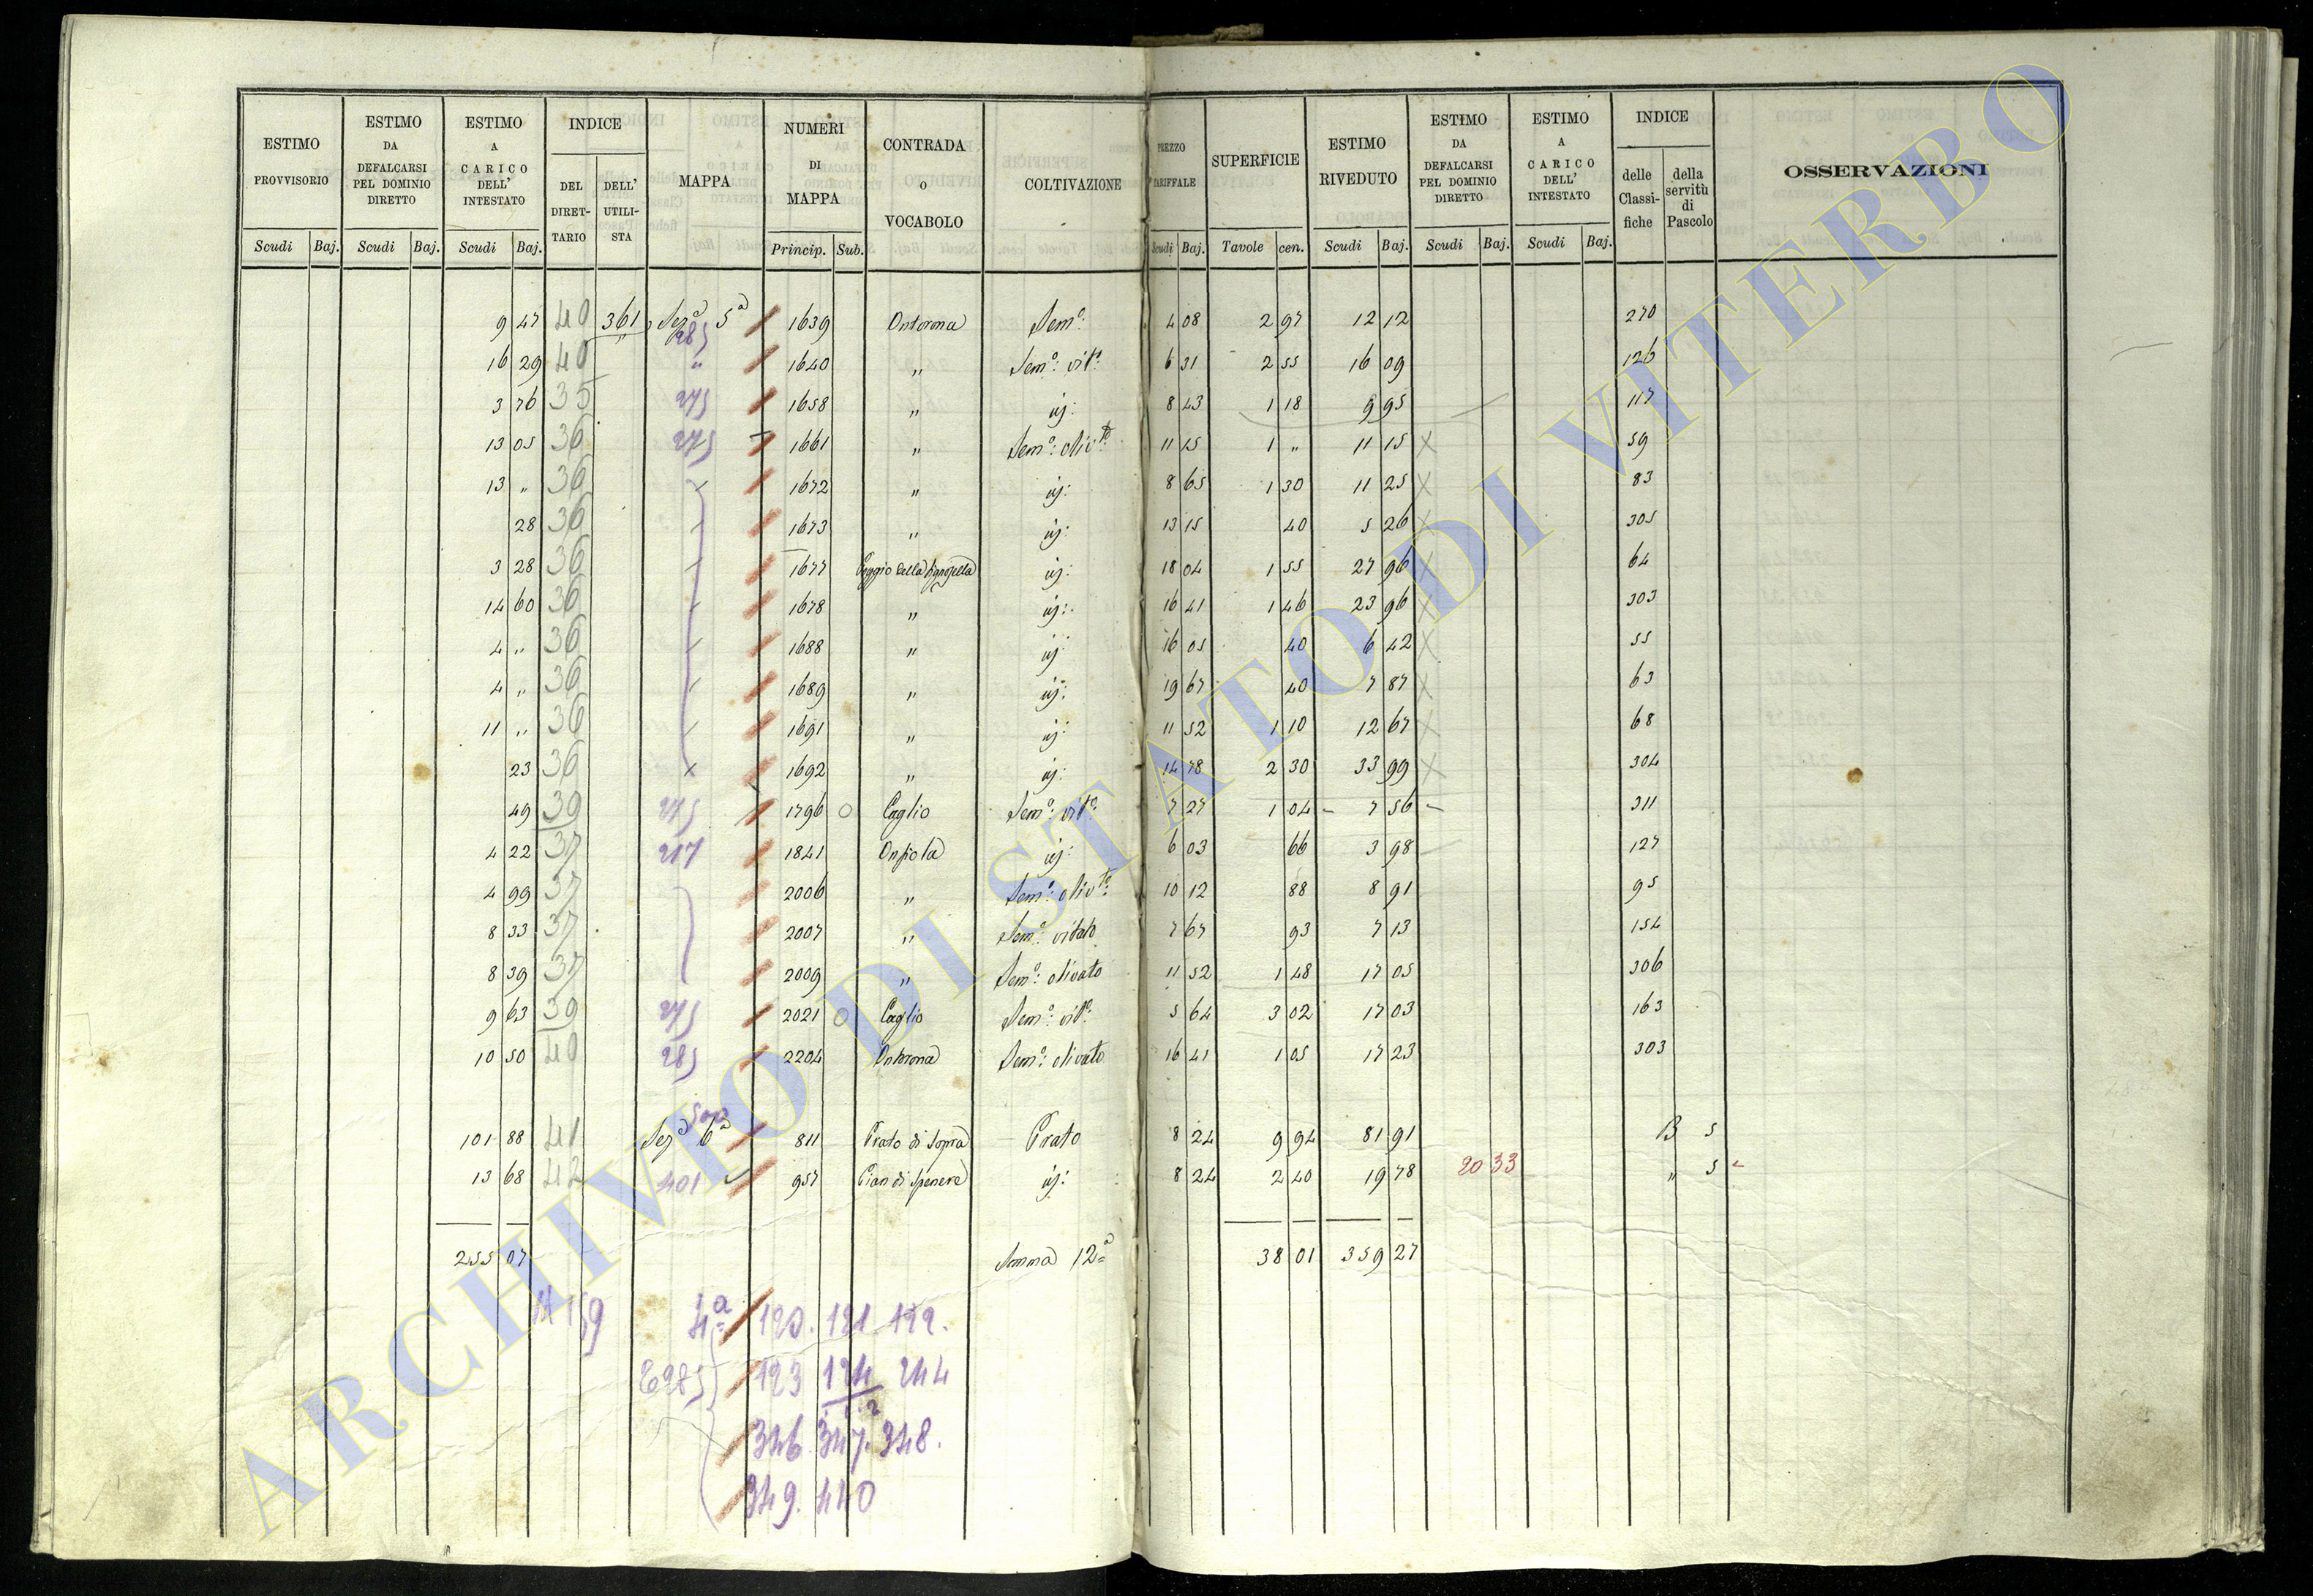 ESTIMO PROVVISORIO
ESTIMO DA DEFALCARSI PEL DOMINIO DIRETTO
ESTIMO A CARICO DELL' INTESTATO
INDICE
DEL DIRETTARIO
DELL' UTILISTA
MAPPA
NUMERI DI MAPPA
CONTRADA O VOCABOLO
COLTIVAZIONE
PREZZO TARIFFALE
SUPERFICIE
ESTIMO RIVEDUTO
ESTIMO DA DEFALCARSI PEL DOMINIO DIRETTO
ESTIMO A CARICO DELL' INTESTATO
INDICE
delle Classifiche
della servitù di Pascolo
OSSERVAZIONI
Scudi Baj. Scudi Baj. Scudi Baj. Princip. Sub. Scudi Baj. Tavole cen. Scudi Baj. Scudi Baj. Scudi Baj.
9 47 40 361 Sezᵃ 5ᵃ 285 1639 Ontorona Semᵒ: 4 08 2 97 12 12 270
16 29 40 " 1640 " Semᵒ: vitᵒ: 6 31 2 55 16 09 126
3 76 35 275 1658 " id: 8 43 1 18 9 95 117
13 05 36 275 1661 " Semᵒ: olivᵗᵒ 11 15 1 " 11 15 X 59
13 " 36 1672 " id: 8 65 1 30 11 25 X 83
28 36 1673 " id: 13 15 40 5 26 X 305
3 28 36 1677 Poggio della id: 18 04 1 55 27 96 X 64
14 60 36 1678 " id: 16 41 1 46 23 96 X 303
4 " 36 1688 " id: 16 05 40 6 42 X 55
4 " 36 1689 " id: 19 67 40 7 87 X 63
11 " 36 1691 " id: 11 52 1 10 12 67 X 68
23 36 1692 " id: 14 78 2 30 33 99 X 304
49 39 275 1796 O Caglio Semᵒ: vitᵒ: 7 27 1 04 – 7 56 – 311
4 22 37 217 1841 Onpiola id: 6 03 66 3 98 127
4 99 37 2006 " Semᵒ: olivᵗᵒ: 10 12 88 8 91 95
8 33 37 2007 " Semᵒ: vitato 7 67 93 7 13 154
8 39 37 2009 " Semᵒ: olivato 11 52 1 48 17 05 306
9 63 39 275 2021 O Caglio Semᵒ: vitᵒ: 5 64 3 02 17 03 163
10 50 40 285 2204 Ontorona Semᵒ: olivato 16 41 1 05 17 23 303
101 88 41 Sezᵃ 6ᵃ 811 Prato di Sopra Prato 8 24 9 94 81 91 B 5
13 68 42 401 957 Pian di Spenera id: 8 24 2 40 19 78 20 33 " 5
255 07 Somma 12ᵃ 38 01 359 27
159 4ᵃ 120. 121 122.
285 123 124 244
346. 347. 348.
349. 440
ARCHIVIO DI STATO DI VITERBO